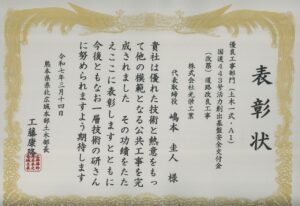 表彰状
優良工事部門(土木一式・A1)
国道443号活力創出基盤安全交付金
(改築)道路改良工事
株式会社光栄工業
代表取締役 嶋本 圭人 様
貴社は優れた技術と熱意をもっ
て他の模範となる公共工事を完
成されました その功績をたた
えここに表彰しますとともに
今後ともなお一層技術の研さん
に努められますよう期待します
令和七年三月十四日
熊本県県北広域本部土木部長
工藤康隆